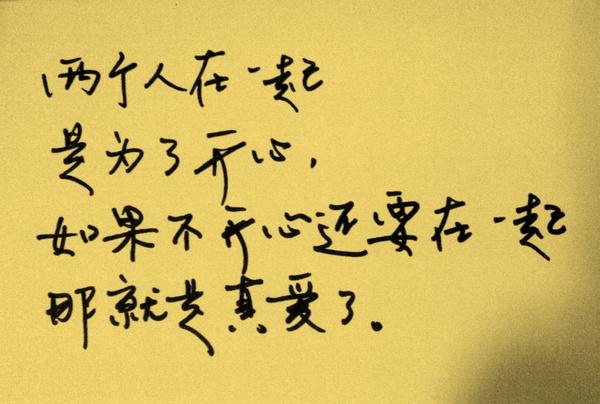 两个人在一起
是为了开心，
如果不开心还要在一起
那就是真爱了。